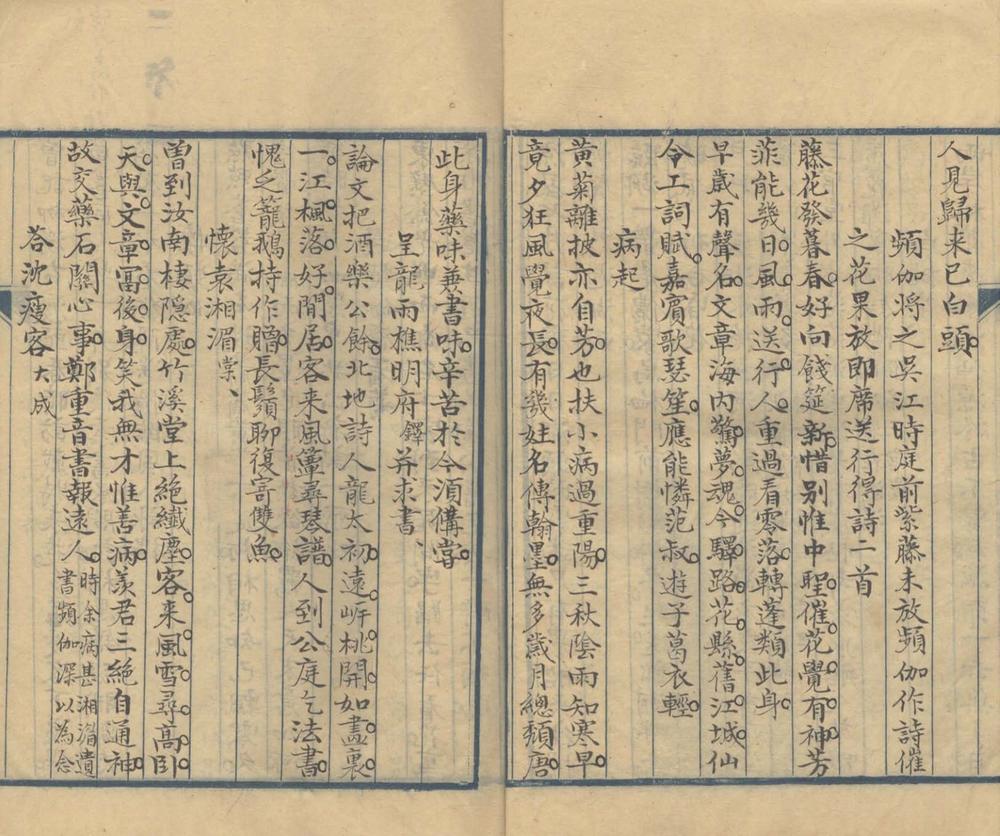 人見歸来已白頭
頻伽將之吳江時庭前紫藤未放頻伽作詩催
之花果放即席送行得詩二首
藤花發暮春好向餞筵新惜别惟中聖催花覺有神芳
菲能幾日風雨送行人重過看零落轉蓬類此身
早歲有聲名文章海内驚夢魂今驛路花縣舊江城仙
令工詞賦嘉賓歌瑟笙應能憐范叔遊子葛衣輕
病起
黄菊離披亦自芳也扶小病過重陽三秋陰雨知寒早
竟夕狂風覺夜長有幾姓名傳翰墨無多歲月總頹唐
此身藥味兼書味辛苦於今須備嘗
呈龍雨樵明府鐸并求書
論文把酒樂公餘北地詩人龍太初遠岍桃開如畵裏
一江楓落好閒居客来風簟尋琴譜人到公庭乞法書
愧乏籠鵝持作贈長鬚聊復寄雙魚
懐袁湘湄棠
曽到汝南棲隱處竹溪堂上絶纖塵客来風雪尋高卧
天與文章富後身笑我無才惟善病羨君三絶自通神
故交藥石關心事鄭重音書報遠人時余病甚湘湄遺書頻伽深以為念
答沈瘦客大成